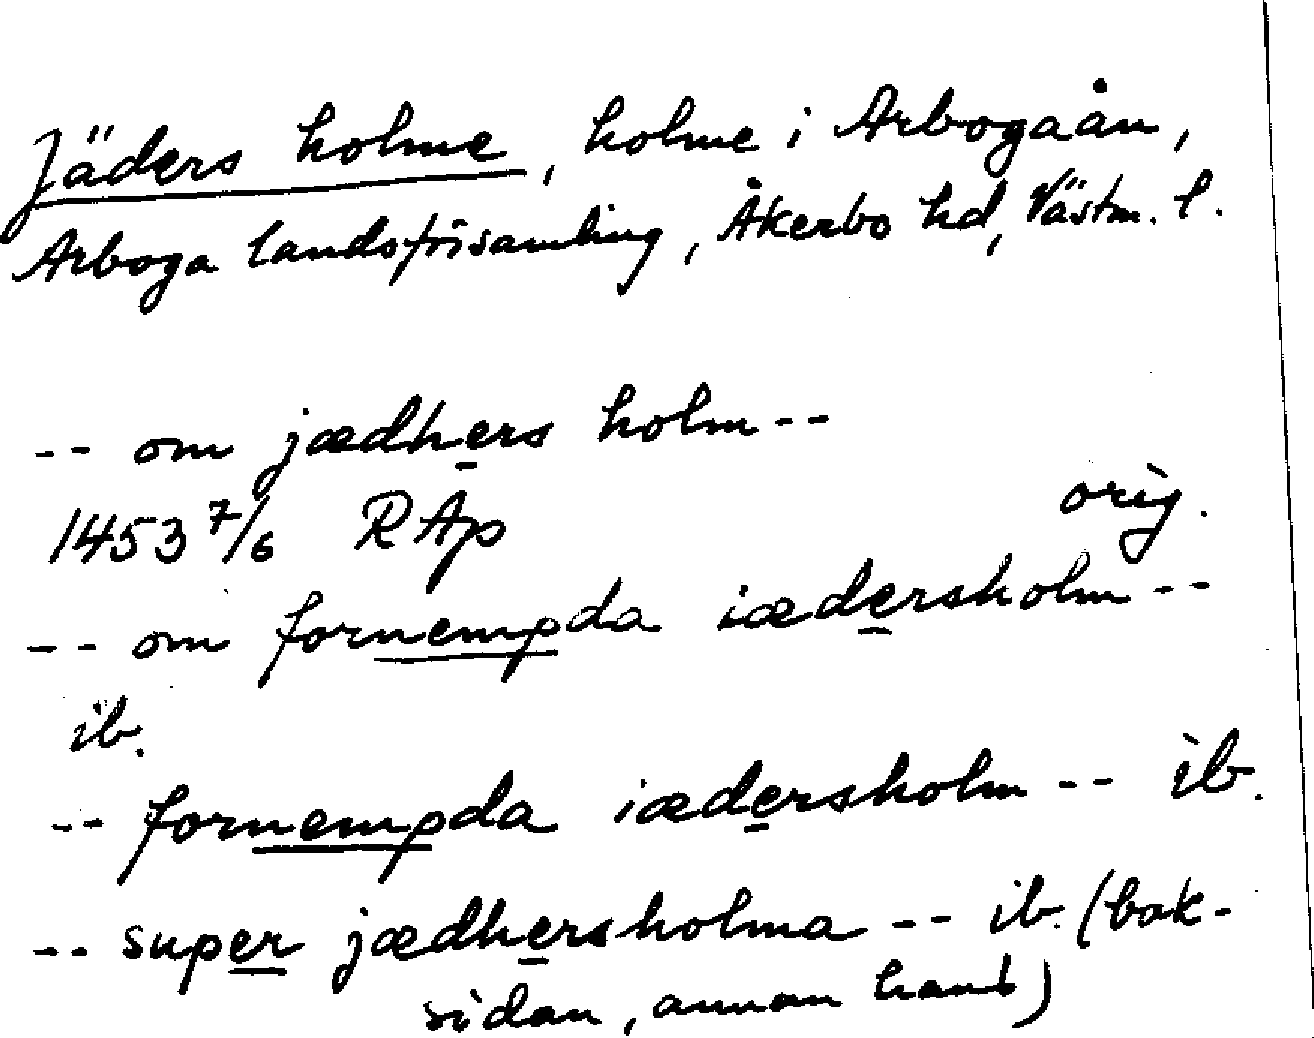 Jäders holme, holme i Arbogaån,
Arboga landsförsamling, Åkerbo hd, Västm. l.
-- om jædhers holm --
1453 7/6 RAp orig.
-- om fornempda iædersholm --
ib.
-- fornempda iædersholm -- ib.
-- super jædhersholma -- ib. (bak-
sidan, annan hand)